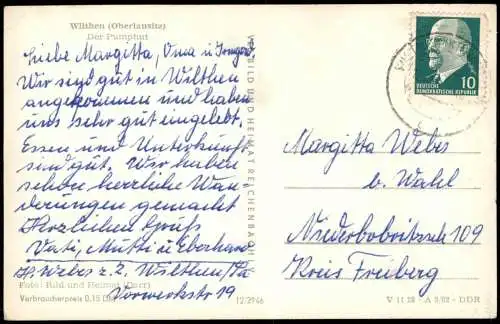 Wilthen (Oberlausitz)
Der Pumphut
Liebe Margitta, Oma u. Irmgard
Wir sind gut in Wilthen
angekommen und haben
uns sehr gut eingelebt.
Essen und Unterkunft
sind gut. Wir haben
schon herrliche Wan-
derungen gemacht
Herzlichen Gruß
Vati, Mutti u. Eberhard
H. Weber z. Z. Wilthen/Sa
Vorwerkstr 19
Foto: Bild und Heimat (Darr)
Verbraucherpreis 0,15 DM
12/2946
VEB BILD UND HEIMAT REICHENBACH I. V.
10
DEUTSCHE
DEMOKRATISCHE REPUBLIK
Margitta Weber
b. Wahl
Niederbobritzsch 109
Kreis Freiberg
V 11 28 - A 5/63 - DDR